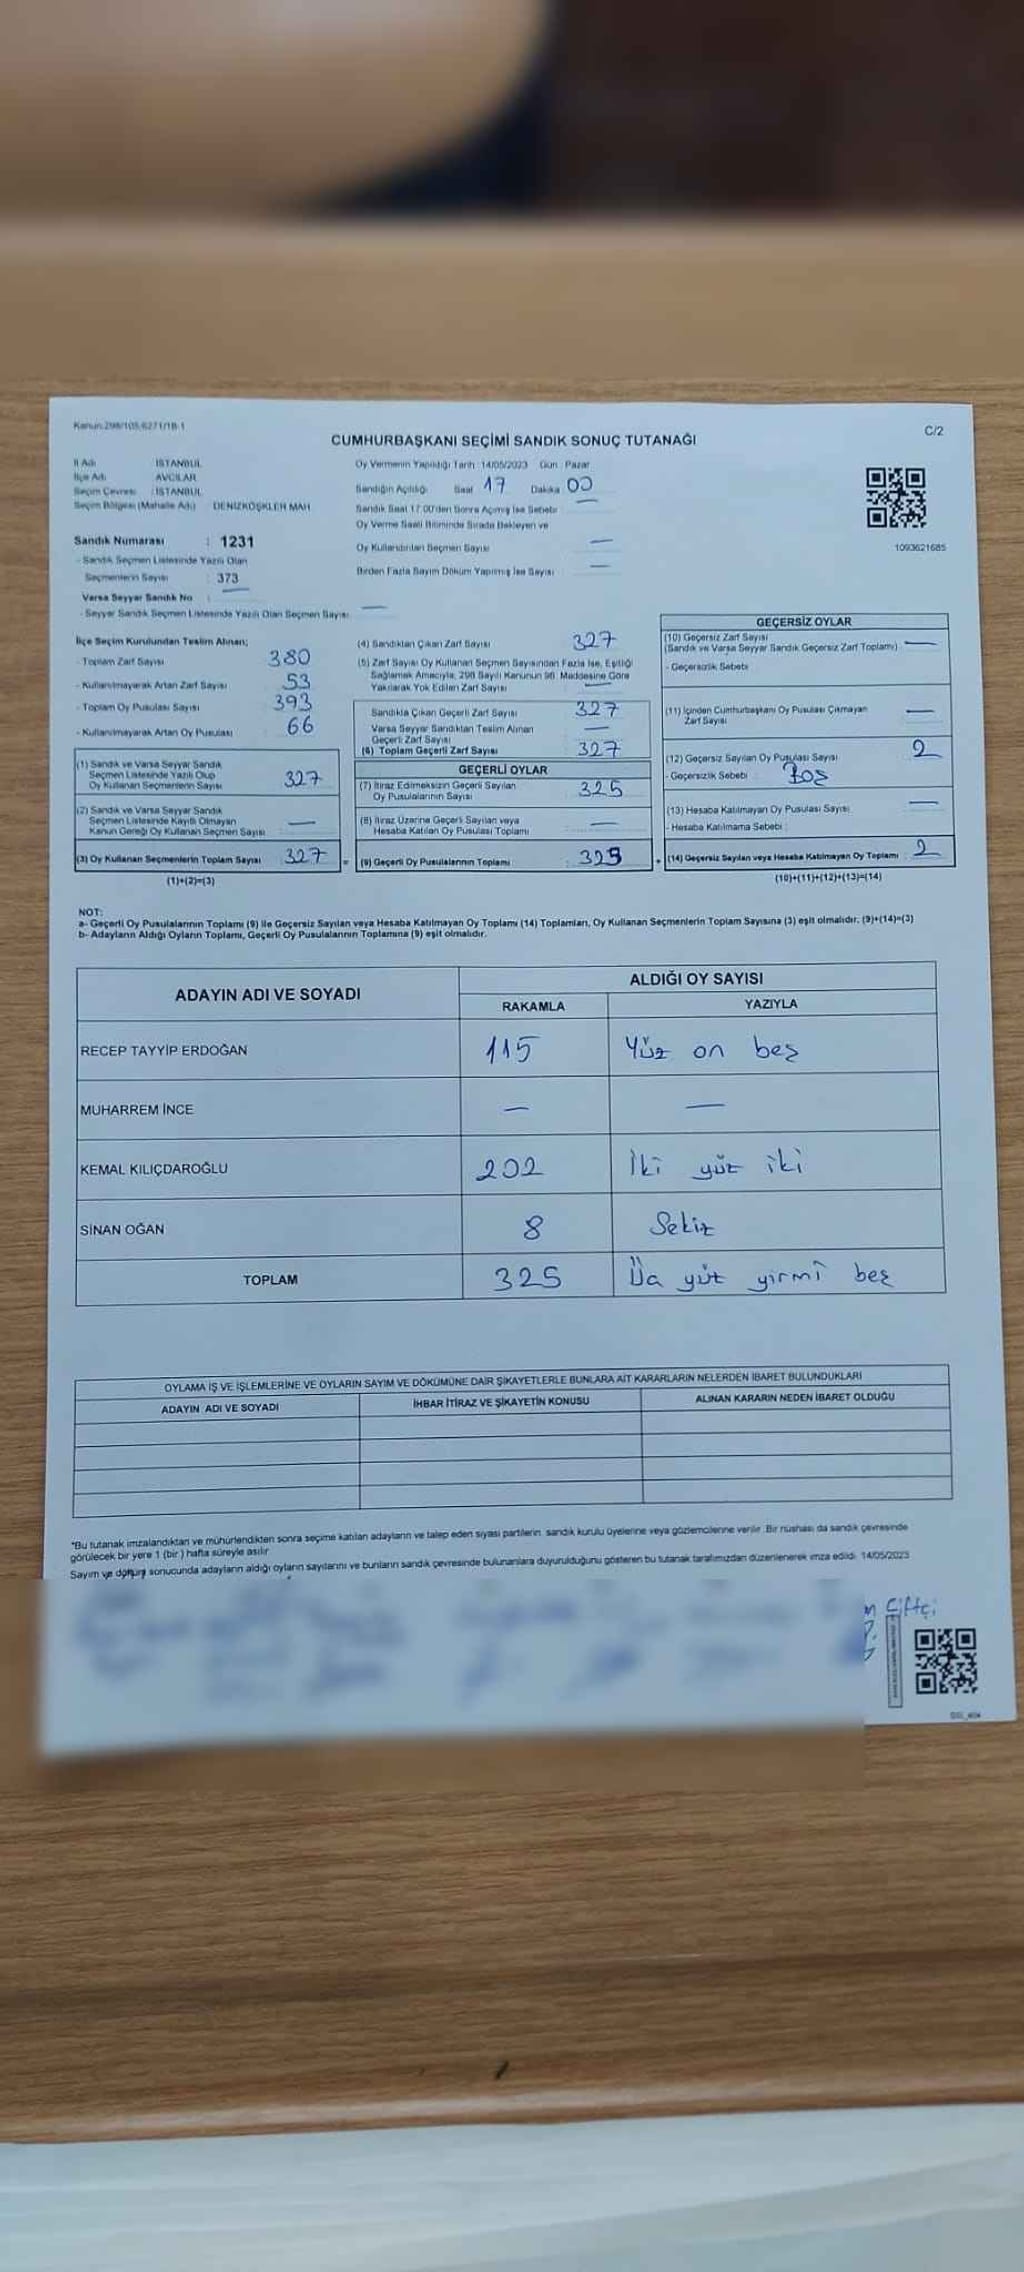 Kanun:298/105-6271/18-1
C/2
CUMHURBAŞKANI SEÇİMİ SANDIK SONUÇ TUTANAĞI
İl Adı İSTANBUL
İlçe Adı AVCILAR
Seçim Çevresi : İSTANBUL
Seçim Bölgesi (Mahalle Adı) DENİZKÖŞKLER MAH
Oy Vermenin Yapıldığı Tarih :14/05/2023 Gün : Pazar
Sandığın Açıldığı Saat 17 Dakika 00
Sandık Saat 17.00'den Sonra Açılmış İse Sebebi
Oy Verme Saati Bitiminde Sırada Bekleyen ve
Oy Kullandırılan Seçmen Sayısı —
Birden Fazla Sayım Döküm Yapılmış İse Sayısı —
1093621685
Sandık Numarası : 1231
- Sandık Seçmen Listesinde Yazılı Olan
Seçmenlerin Sayısı : 373
Varsa Seyyar Sandık No —
- Seyyar Sandık Seçmen Listesinde Yazılı Olan Seçmen Sayısı —
İlçe Seçim Kurulundan Teslim Alınan;
- Toplam Zarf Sayısı 380
- Kullanılmayarak Artan Zarf Sayısı 53
- Toplam Oy Pusulası Sayısı 393
- Kullanılmayarak Artan Oy Pusulası 66
(1) Sandık ve Varsa Seyyar Sandık
Seçmen Listesinde Yazılı Olup
Oy Kullanan Seçmenlerin Sayısı 327
(2) Sandık ve Varsa Seyyar Sandık
Seçmen Listesinde Kayıtlı Olmayan
Kanun Gereği Oy Kullanan Seçmen Sayısı —
(3) Oy Kullanan Seçmenlerin Toplam Sayısı 327
(1)+(2)=(3)
(4) Sandıktan Çıkan Zarf Sayısı 327
(5) Zarf Sayısı Oy Kullanan Seçmen Sayısından Fazla İse, Eşitliği
Sağlamak Amacıyla, 298 Sayılı Kanunun 98. Maddesine Göre
Yakılarak Yok Edilen Zarf Sayısı —
Sandıkta Çıkan Geçerli Zarf Sayısı 327
Varsa Seyyar Sandıktan Teslim Alınan
Geçerli Zarf Sayısı —
(6) Toplam Geçerli Zarf Sayısı 327
GEÇERLİ OYLAR
(7) İtiraz Edilmeksizin Geçerli Sayılan
Oy Pusulalarının Sayısı 325
(8) İtiraz Üzerine Geçerli Sayılan veya
Hesaba Katılan Oy Pusulası Toplamı —
= (9) Geçerli Oy Pusulalarının Toplamı : 325
GEÇERSİZ OYLAR
(10) Geçersiz Zarf Sayısı
(Sandık ve Varsa Seyyar Sandık Geçersiz Zarf Toplamı) —
- Geçersizlik Sebebi
(11) İçinden Cumhurbaşkanı Oy Pusulası Çıkmayan
Zarf Sayısı —
(12) Geçersiz Sayılan Oy Pusulası Sayısı 2
- Geçersizlik Sebebi : Boş
(13) Hesaba Katılmayan Oy Pusulası Sayısı —
- Hesaba Katılmama Sebebi :
+ (14) Geçersiz Sayılan veya Hesaba Katılmayan Oy Toplamı : 2
(10)+(11)+(12)+(13)=(14)
NOT:
a- Geçerli Oy Pusulalarının Toplamı (9) ile Geçersiz Sayılan veya Hesaba Katılmayan Oy Toplamı (14) Toplamları, Oy Kullanan Seçmenlerin Toplam Sayısına (3) eşit olmalıdır. (9)+(14)=(3)
b- Adayların Aldığı Oyların Toplamı, Geçerli Oy Pusulalarının Toplamına (9) eşit olmalıdır.
ADAYIN ADI VE SOYADI ALDIĞI OY SAYISI
RAKAMLA YAZIYLA
RECEP TAYYİP ERDOĞAN 115 Yüz on beş
MUHARREM İNCE — —
KEMAL KILIÇDAROĞLU 202 İki yüz iki
SİNAN OĞAN 8 Sekiz
TOPLAM 325 yüz yirmi beş
OYLAMA İŞ VE İŞLEMLERİNE VE OYLARIN SAYIM VE DÖKÜMÜNE DAİR ŞİKAYETLERLE BUNLARA AİT KARARLARIN NELERDEN İBARET BULUNDUKLARI
ADAYIN ADI VE SOYADI İHBAR İTİRAZ VE ŞİKAYETİN KONUSU ALINAN KARARIN NEDEN İBARET OLDUĞU
*Bu tutanak imzalandıktan ve mühürlendikten sonra seçime katılan adayların ve talep eden siyasi partilerin, sandık kurulu üyelerine veya gözlemcilerine verilir. Bir nüshası da sandık çevresinde
görülecek bir yere 1 (bir) hafta süreyle asılır
Sayım ve döküm sonucunda adayların aldığı oyların sayılarını ve bunların sandık çevresinde bulunanlara duyurulduğunu gösteren bu tutanak tarafımızdan düzenlenerek imza edildi. 14/05/2023
Çiftçi